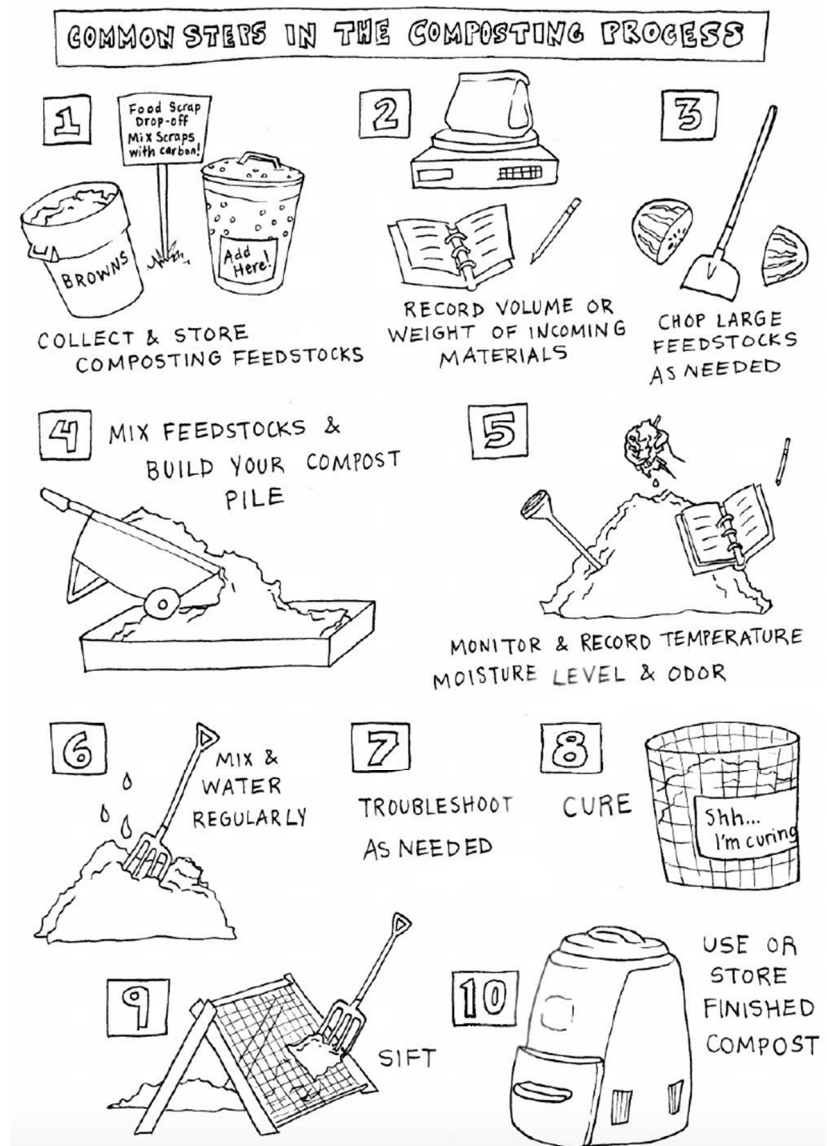 COMMON STEPS IN THE COMPOSTING PROCESS
1
Food Scrap
Drop-off
Mix Scraps
with carbon!
BROWNS
Add
Here!
COLLECT & STORE
COMPOSTING FEEDSTOCKS
2
RECORD VOLUME OR
WEIGHT OF INCOMING
MATERIALS
3
CHOP LARGE
FEEDSTOCKS
AS NEEDED
4
MIX FEEDSTOCKS &
BUILD YOUR COMPOST
PILE
5
MONITOR & RECORD TEMPERATURE
MOISTURE LEVEL & ODOR
6
MIX &
WATER
REGULARLY
7
TROUBLESHOOT
AS NEEDED
8
CURE
Shh...
I'm curing
9
SIFT
10
USE OR
STORE
FINISHED
COMPOST